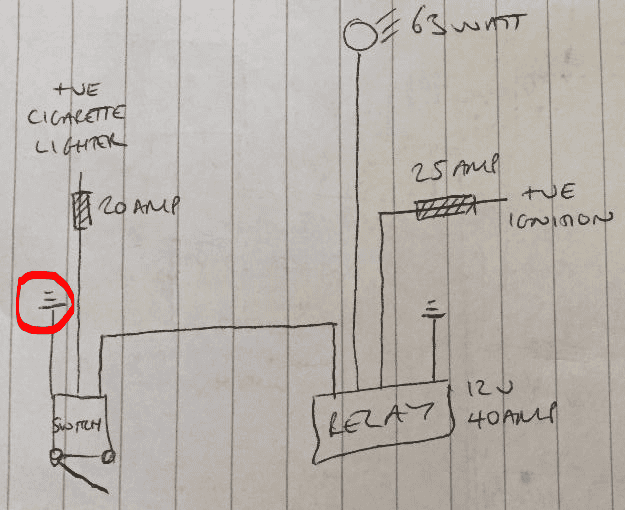 63 WATT
+VE
CIGARETTE
LIGHTER
20 AMP
25 AMP
+VE
IGNISION
SWITCH
RELAY
12V
40AMP